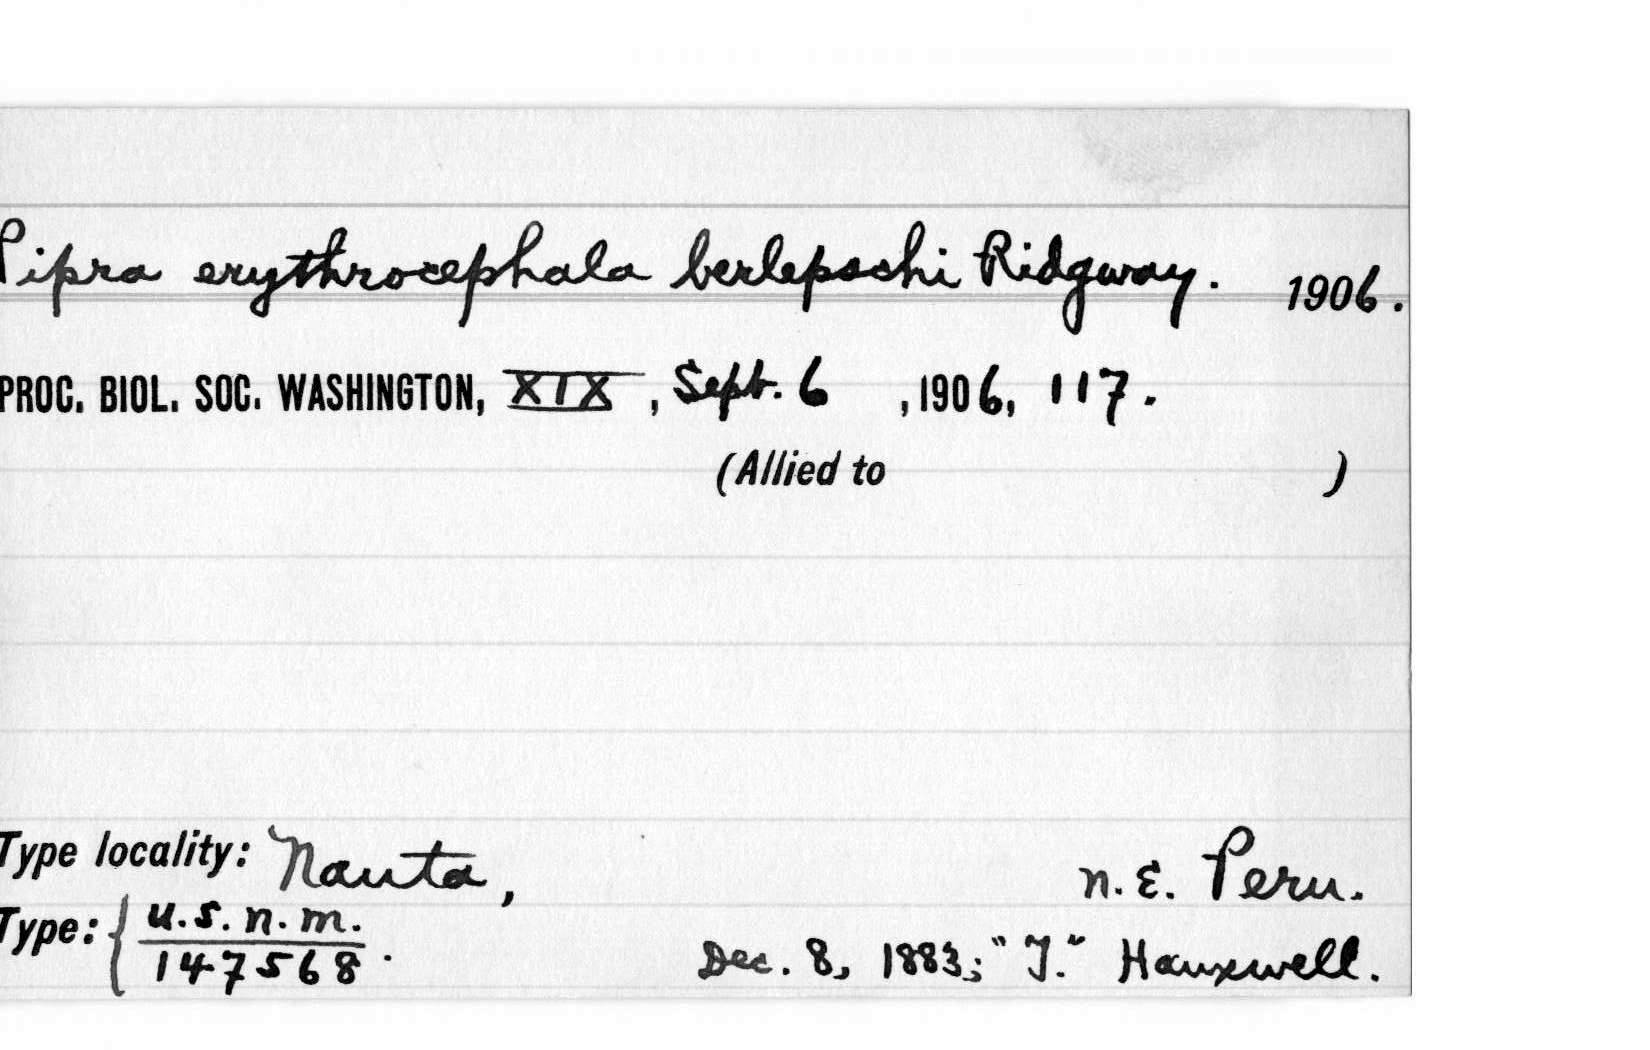 Pipra erythrocephala berlepschi Ridgway. 1906.
PROC. BIOL. SOC. WASHINGTON, XIX, Sept. 6, 1906, 117.
(Allied to )
Type locality: Nauta, N. E. Peru.
Type: { U.S.N.M. 147568. Dec. 8, 1883; "J." Hauxwell.